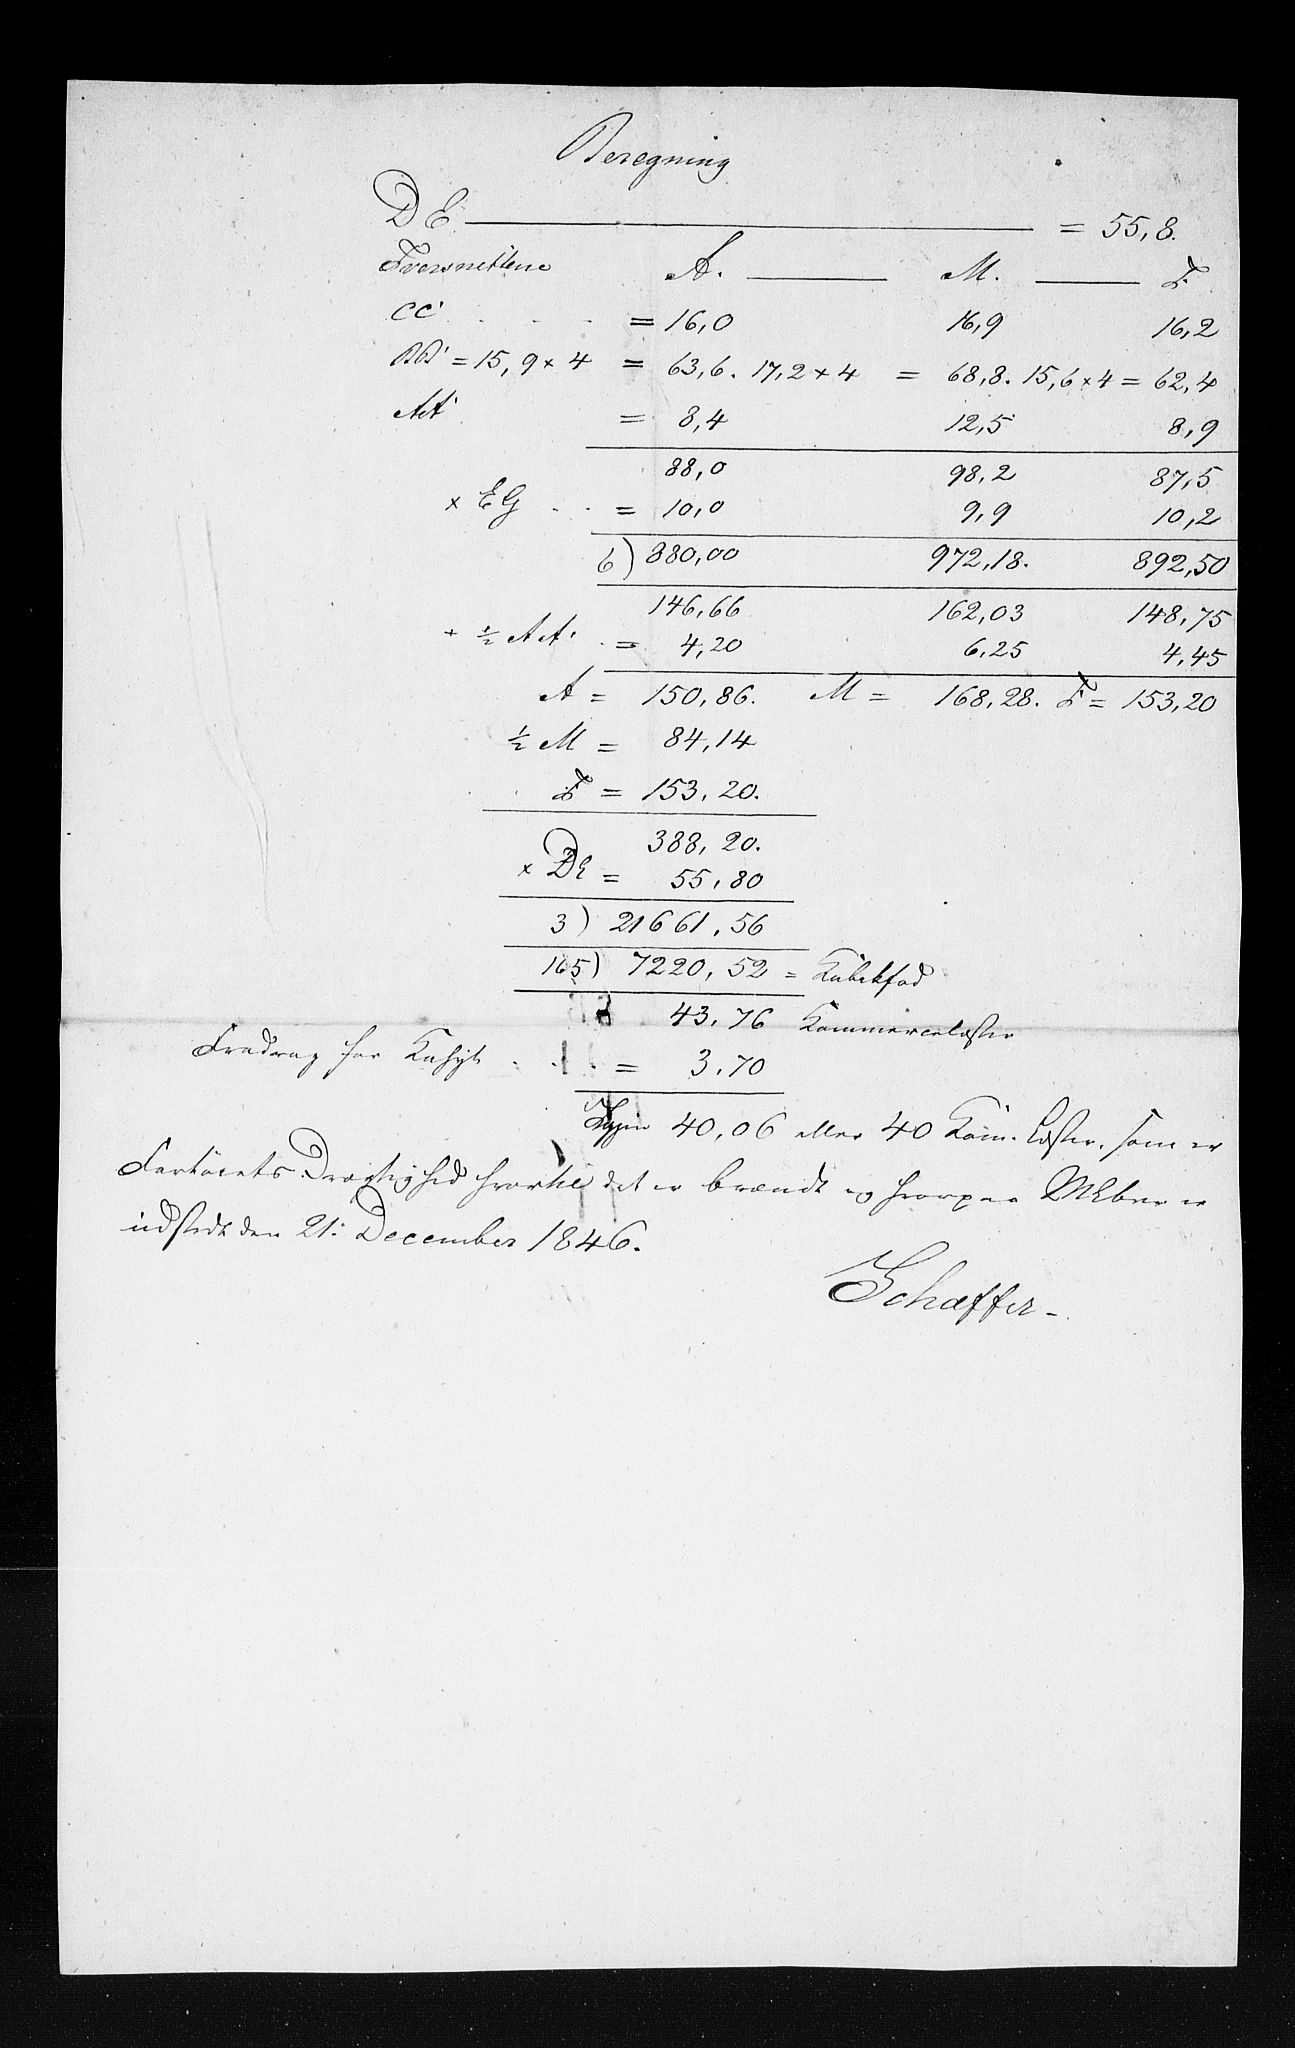 Beregning
DE = 55,8.
Tversnittene A. M. F.
CC' = 16,0 16,9 16,2
BB' = 15,9 x 4 = 63,6. 17,2 x 4 = 68,8. 15,6 x 4 = 62,4
AA' = 8,4 12,5 8,9
88,0 98,2 87,5
x EG = 10,0 9,9 10,2
6) 880,00 972,18. 892,50
146,66 162,03 148,75
+ ½ AA' = 4,20 6,25 4,45
A = 150,86. M = 168,28. F = 153,20
½ M = 84,14
F = 153,20.
388,20.
x DE = 55,80
3) 21661,56
165) 7220,52 = Kubikfod
43,76 Kommercelæster
Fradrag for Kahyt = 3,70
Igjen 40,06 eller 40 Kom. Læster, som er
Fartöiets Drægtighed hvortil det er brændt og hvorpaa Maalebrev er
udstedt den 21: December 1846.
Schæffer